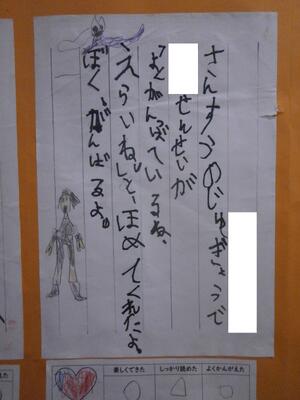 さんすうのじゅぎょうで
せんせいが
「よくがんばっているね、
えらいね」と、ほめてくれたよ。
ぼく、がんばるよ。
楽しくできた
しっかり読めた
よくかんがえた